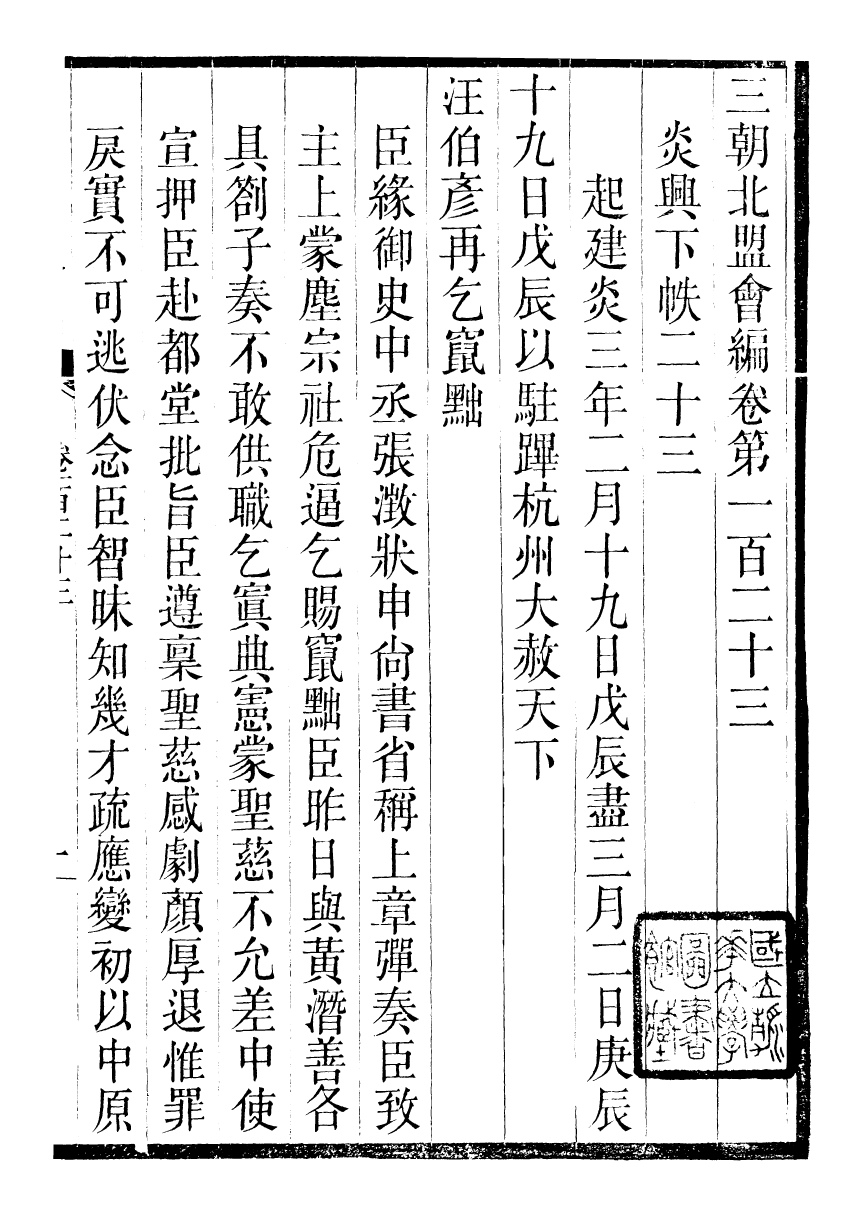 三朝北盟會編卷第一百二十三
炎興下帙二十三
起建炎三年二月十九日戊辰盡三月二日庚辰
十九日戊辰以駐蹕杭州大赦天下
汪伯彥再乞竄黜
臣緣御史中丞張澂狀申尙書省稱上章彈奏臣致
主上蒙塵宗社危逼乞賜竄黜臣昨日與黃潛善各
具劄子奏不敢供職乞寘典憲蒙聖慈不允差中使
宣押臣赴都堂批旨臣遵稟聖慈感劇顏厚退惟罪
戾實不可逃伏念臣智昧知幾才疏應變初以中原
卷一百二十三
一
國立清華大學圖書館藏